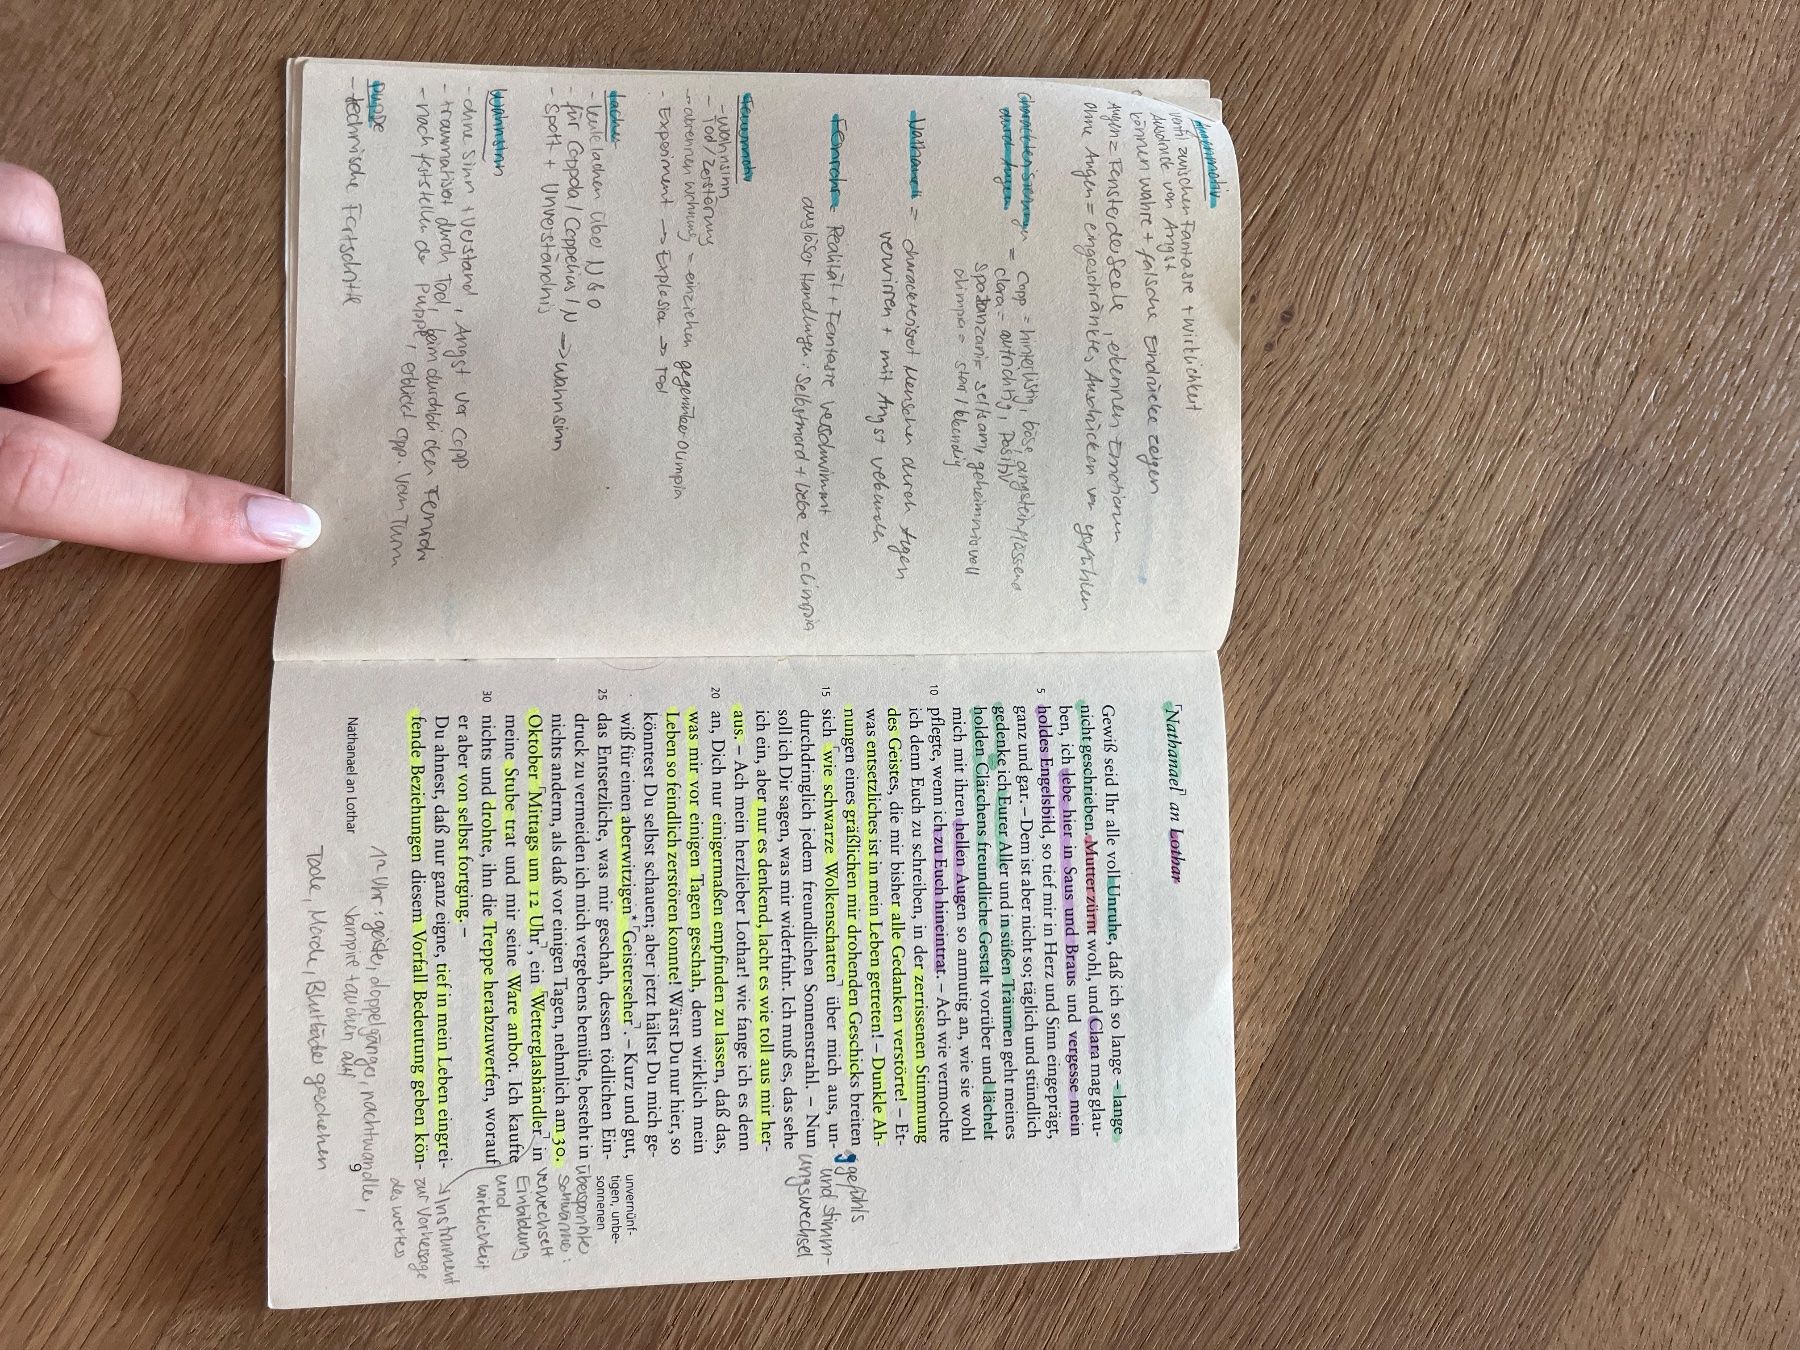 Augenmotiv
Ventil zwischen Fantasie + Wirklichkeit
Ausdruck von Angst
können wahre + falsche Eindrücke zeigen
Augen = Fenster der Seele, erkennen Emotionen
Ohne Augen = eingeschränktes Ausdrücken von Gefühlen
Charakterisierungen
durch Augen
= Copp = hinterlistig, böse, angsteinflössend
Clara = aufrichtig, Positiv
Spalanzani = seltsam, geheimnisvoll
Olimpia = starr/
Nathanael = charakterisiert Menschen durch Augen
verwirren + mit Angst verbunden
Fernrohr = Realität + Fantasie verschwimmt
auslöser Handlungen: Selbstmord + Liebe zu Olimpia
- Wahnsinn
- Tod / Zerstörung
- abrennen Wohnung = einziehen gegenüber Olimpia
- Experiment → Explosion → Tod
Lachen
- Leute lachen über N & O
- für Coppola / Coppelius / N → Wahnsinn
- Spott + Unverständnis
Wahnsinn
- ohne Sinn + Verstand, Angst vor Copp
- traumatisiert durch Tod, beim durchblicken Fernroh
- nach feststellen der Puppe, erblickt Copp. vom Turm
Puppe
- technische Fortschritte
Nathanael an Lothar
Gewiß seid Ihr alle voll Unruhe, daß ich so lange – lange
nicht geschrieben. Mutter zürnt wohl, und Clara mag glau-
ben, ich lebe hier in Saus und Braus und vergesse mein
5 holdes Engelsbild, so tief mir in Herz und Sinn eingeprägt,
ganz und gar. – Dem ist aber nicht so; täglich und stündlich
gedenke ich Eurer Aller und in süßen Träumen geht meines
holden Clärchens freundliche Gestalt vorüber und lächelt
mich mit ihren hellen Augen so anmutig an, wie sie wohl
10 pflegte, wenn ich zu Euch hineintrat. – Ach wie vermochte
ich denn Euch zu schreiben, in der zerrissenen Stimmung
des Geistes, die mir bisher alle Gedanken verstörte! – Et-
was entsetzliches ist in mein Leben getreten! – Dunkle Ah-
nungen eines gräßlichen mir drohenden Geschicks breiten
15 sich wie schwarze Wolkenschatten über mich aus, un-
durchdringlich jedem freundlichen Sonnenstrahl. – Nun
soll ich Dir sagen, was mir widerfuhr. Ich muß es, das sehe
ich ein, aber nur es denkend, lacht es wie toll aus mir her-
aus. – Ach mein herzlieber Lothar! wie fange ich es denn
20 an, Dich nur einigermaßen empfinden zu lassen, daß das,
was mir vor einigen Tagen geschah, denn wirklich mein
Leben so feindlich zerstören konnte! Wärst Du nur hier, so
könntest Du selbst schauen; aber jetzt hältst Du mich ge-
wiß für einen aberwitzigen* Geisterseher. – Kurz und gut,
25 das Entsetzliche, was mir geschah, dessen tödlichen Ein-
druck zu vermeiden ich mich vergebens bemühe, besteht in
nichts anderm, als daß vor einigen Tagen, nehmlich am 30.
Oktober Mittags um 12 Uhr, ein Wetterglashändler in
meine Stube trat und mir seine Ware anbot. Ich kaufte
30 nichts und drohte, ihn die Treppe herabzuwerfen, worauf
er aber von selbst fortging. –
Du ahnest, daß nur ganz eigne, tief in mein Leben eingrei-
fende Beziehungen diesem Vorfall Bedeutung geben kön-
gefühls
und stimm-
ungswechsel
unvernünf-
tigen, unbe-
sonnenen
überspannter
schwärmer:
verwechselt
Einbildung
und
wirklichkeit
→ Instrument
zur Vorhersage
des wetters
Nathanael an Lothar
9
12 Uhr: geister, doppelgänger, nachtwandler,
Vampire tauchen auf
Tode, Morde, Bluttaten geschehen